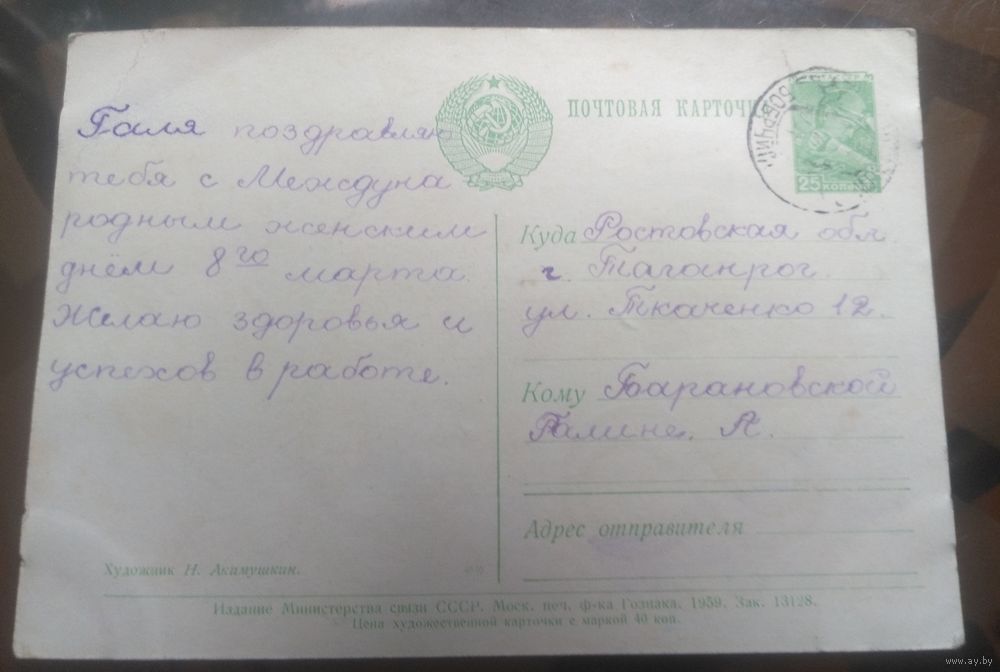 ПОЧТОВАЯ КАРТОЧКА
25 КОПЕЕК
Галя поздравляю
тебя с Междуна
родным женским
днём 8го марта.
Желаю здоровья и
успехов в работе.
Куда Ростовская обл
г. Таганрог.
ул. Ткаченко 12.
Кому Барановской
Галине. А.
Адрес отправителя
Художник Н. Акимушкин.
Издание Министерства связи СССР. Моск. печ. ф-ка Гознака. 1959. Зак. 13128.
Цена художественной карточки с маркой 40 коп.
www.ay.by